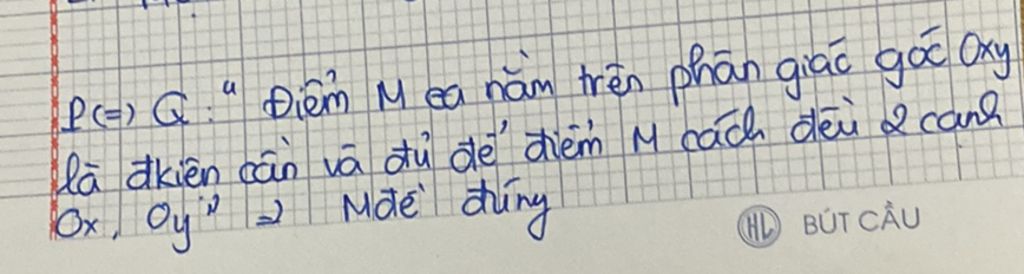 P(=) Q : " Điểm M nằm trên phân giác góc Oxy
là đkiện cần và đủ để điểm M cách đều 2 cạnh
Ox, Oy" => Mđề đúng
HL BÚT CẦU